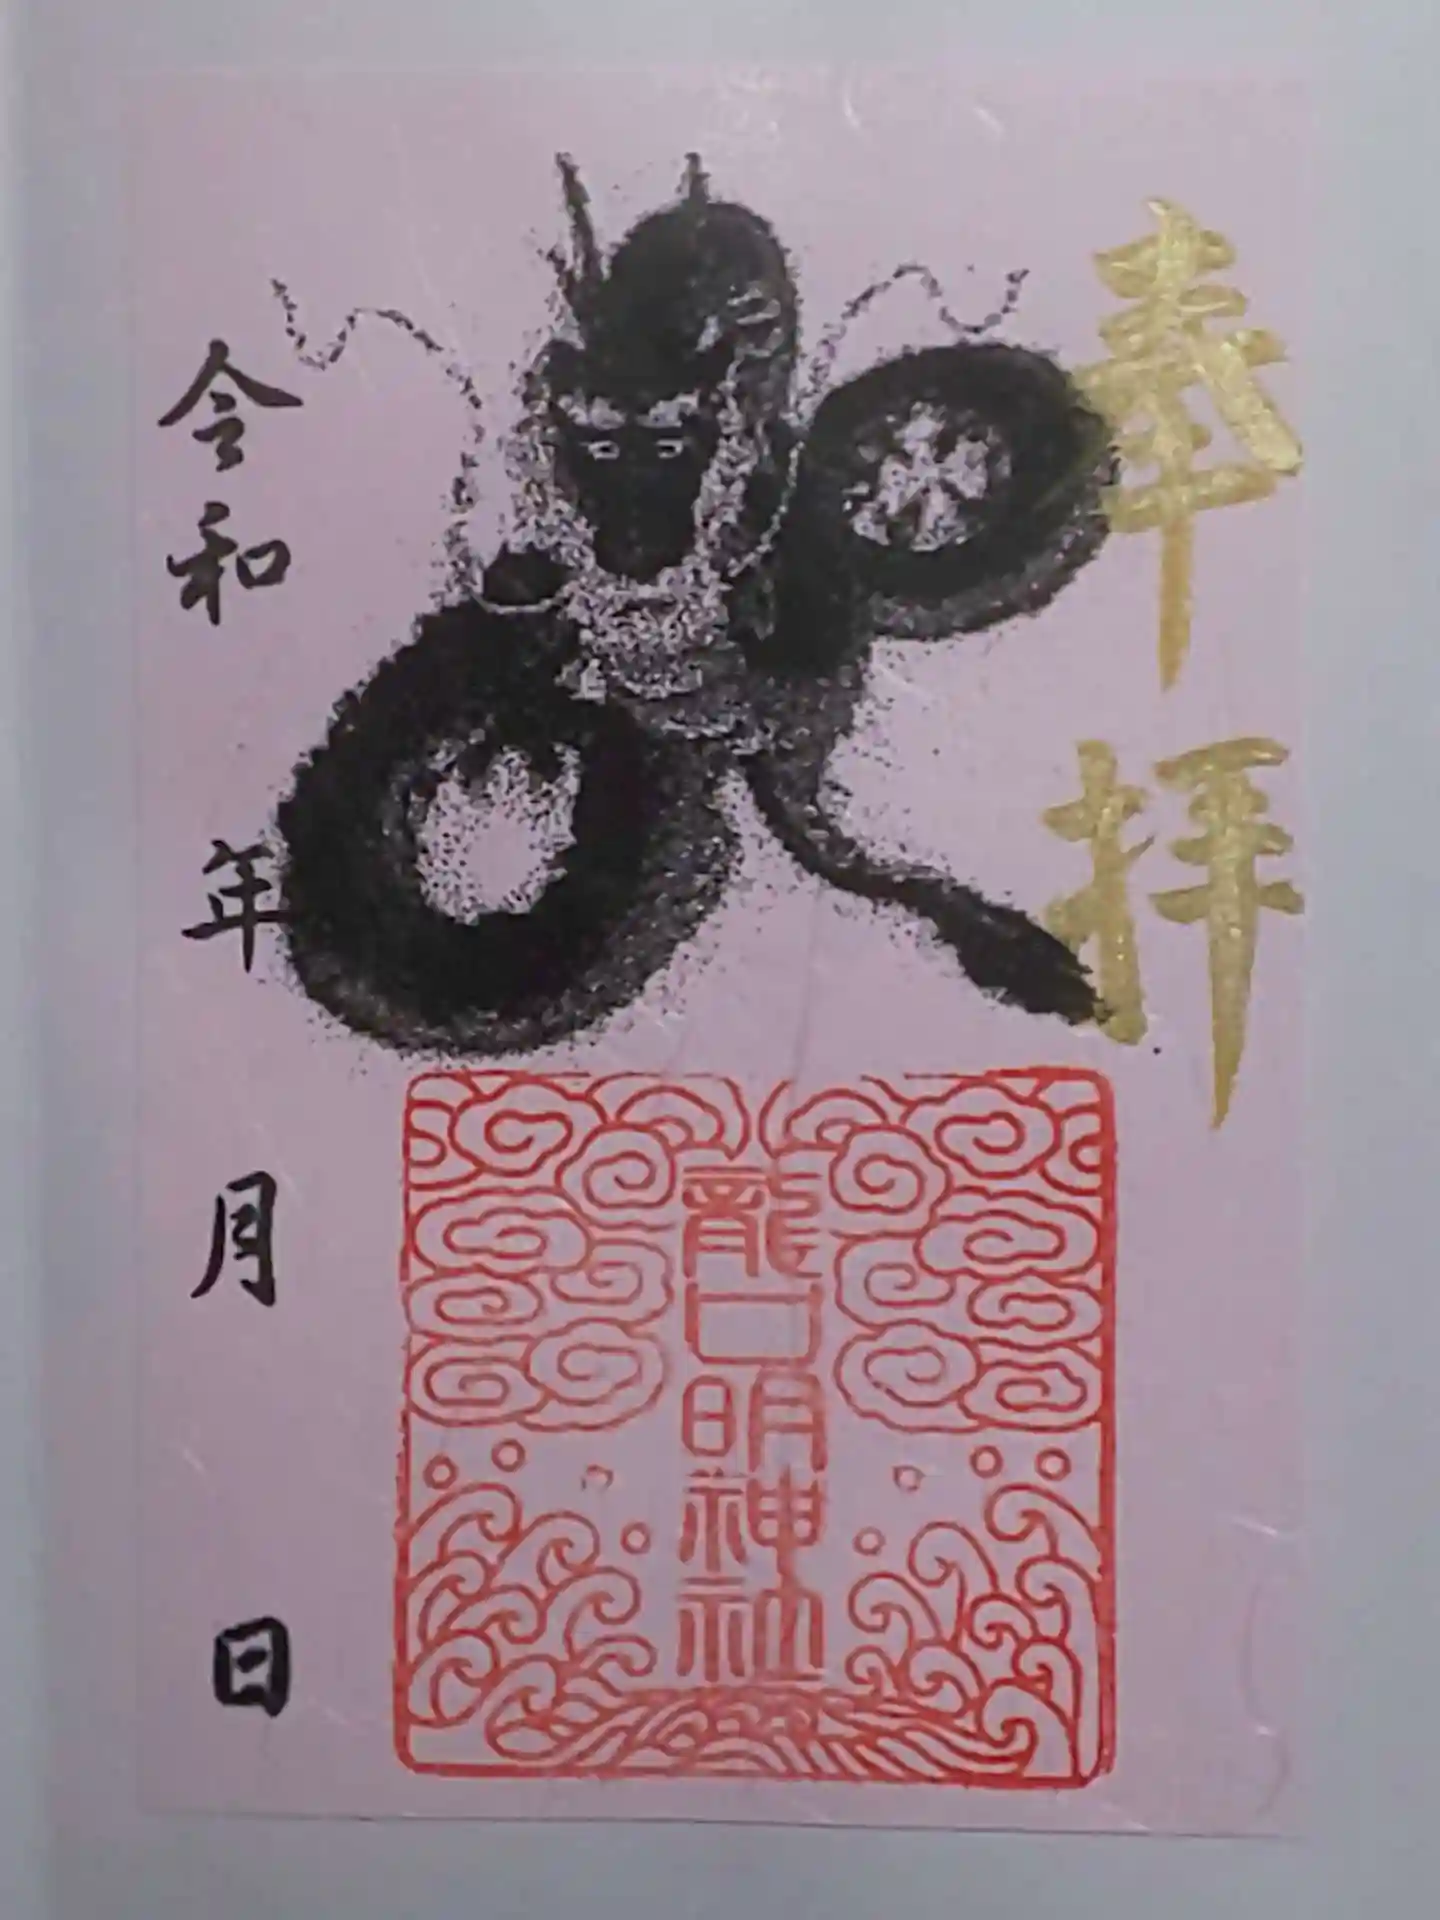 奉拝
龍口明神社
令和 年 月 日